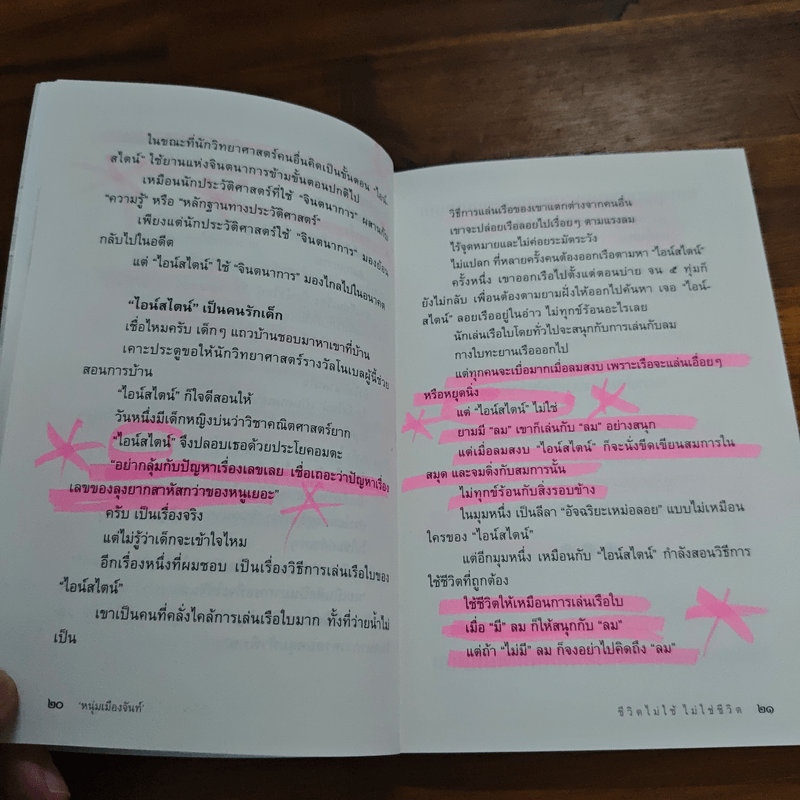 ในขณะที่นักวิทยาศาสตร์คนอื่นคิดเป็นขั้นตอน "ไอน์-
สไตน์" ใช้ยานแห่งจินตนาการข้ามขั้นตอนปกติไป
เหมือนนักประวัติศาสตร์ที่ใช้ "จินตนาการ" ผสานกับ
"ความรู้" หรือ "หลักฐานทางประวัติศาสตร์"
เพียงแต่นักประวัติศาสตร์ใช้ "จินตนาการ" มองย้อน
กลับไปในอดีต
แต่ "ไอน์สไตน์" ใช้ "จินตนาการ" มองไกลไปในอนาคต
"ไอน์สไตน์" เป็นคนรักเด็ก
เชื่อไหมครับ เด็กๆ แถวบ้านชอบมาหาเขาที่บ้าน
เคาะประตูขอให้นักวิทยาศาสตร์รางวัลโนเบลผู้นี้ช่วย
สอนการบ้าน
"ไอน์สไตน์" ก็ใจดีสอนให้
วันหนึ่งมีเด็กหญิงบ่นว่าวิชาคณิตศาสตร์ยาก
"ไอน์สไตน์" จึงปลอบเธอด้วยประโยคอมตะ
"อย่ากลุ้มกับปัญหาเรื่องเลขเลย เชื่อเถอะว่าปัญหาเรื่อง
เลขของลุงยากสาหัสกว่าของหนูเยอะ"
ครับ เป็นเรื่องจริง
แต่ไม่รู้ว่าเด็กจะเข้าใจไหม
อีกเรื่องหนึ่งที่ผมชอบ เป็นเรื่องวิธีการเล่นเรือใบของ
"ไอน์สไตน์"
เขาเป็นคนที่คลั่งไคล้การเล่นเรือใบมาก ทั้งที่ว่ายน้ำไม่
เป็น
๒๐ 'หนุ่มเมืองจันท์'
วิธีการแล่นเรือของเขาแตกต่างจากคนอื่น
เขาจะปล่อยเรือลอยไปเรื่อยๆ ตามแรงลม
ไร้จุดหมายและไม่ค่อยระมัดระวัง
ไม่แปลก ที่หลายครั้งคนต้องออกเรือตามหา "ไอน์สไตน์"
ครั้งหนึ่ง เขาออกเรือไปตั้งแต่ตอนบ่าย จน ๕ ทุ่มก็
ยังไม่กลับ เพื่อนต้องตามยามฝั่งให้ออกไปค้นหา เจอ "ไอน์-
สไตน์" ลอยเรืออยู่ในอ่าว ไม่ทุกข์ร้อนอะไรเลย
นักเล่นเรือใบโดยทั่วไปจะสนุกกับการเล่นกับลม
กางใบทะยานเรือออกไป
แต่ทุกคนจะเบื่อมากเมื่อลมสงบ เพราะเรือจะแล่นเอื่อยๆ
หรือหยุดนิ่ง
แต่ "ไอน์สไตน์" ไม่ใช่
ยามมี "ลม" เขาก็เล่นกับ "ลม" อย่างสนุก
แต่เมื่อลมสงบ "ไอน์สไตน์" ก็จะนั่งขีดเขียนสมการใน
สมุด และจมดิ่งกับสมการนั้น
ไม่ทุกข์ร้อนกับสิ่งรอบข้าง
ในมุมหนึ่ง เป็นลีลา "อัจฉริยะเหม่อลอย" แบบไม่เหมือน
ใครของ "ไอน์สไตน์"
แต่อีกมุมหนึ่ง เหมือนกับ "ไอน์สไตน์" กำลังสอนวิธีการ
ใช้ชีวิตที่ถูกต้อง
ใช้ชีวิตให้เหมือนการเล่นเรือใบ
เมื่อ "มี" ลม ก็ให้สนุกกับ "ลม"
แต่ถ้า "ไม่มี" ลม ก็จงอย่าไปคิดถึง "ลม"
ชีวิตไม่ใช้ ไม่ใช่ชีวิต ๒๑